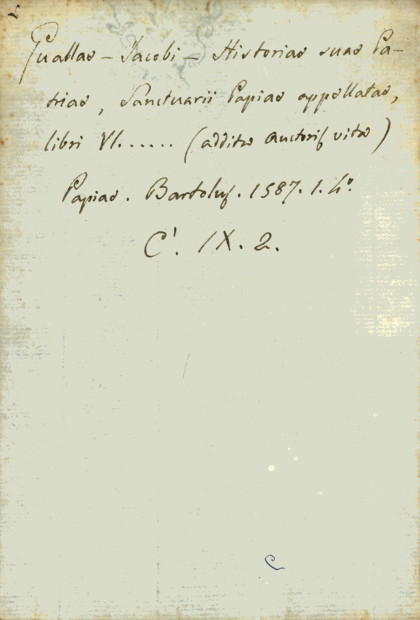 Guallae - Jacobi - Historiae suae Pa-
triae, Sanctuarii Papiae appellatae,
libri VI...... (addita Auctoris vita)
Papiae. Bartolus. 1587. 1. 4º.
C'. IX. 2.